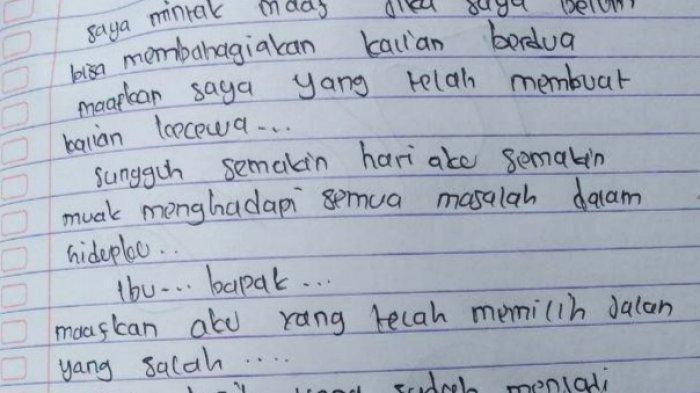 saya mintak maaf jika saya belum
bisa membahagiakan kalian berdua
maafkan saya yang telah membuat
kalian kecewa...
sungguh semakin hari aku semakin
muak menghadapi semua masalah dalam
hidupku..
Ibu... bapak...
maafkan aku yang telah memilih jalan
yang salah ....
yang sudah menjadi